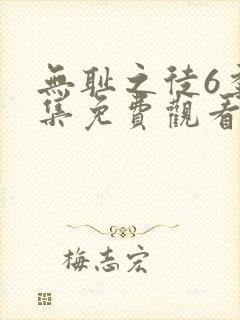 無耻之徒6
集免費觀看
梅志宏